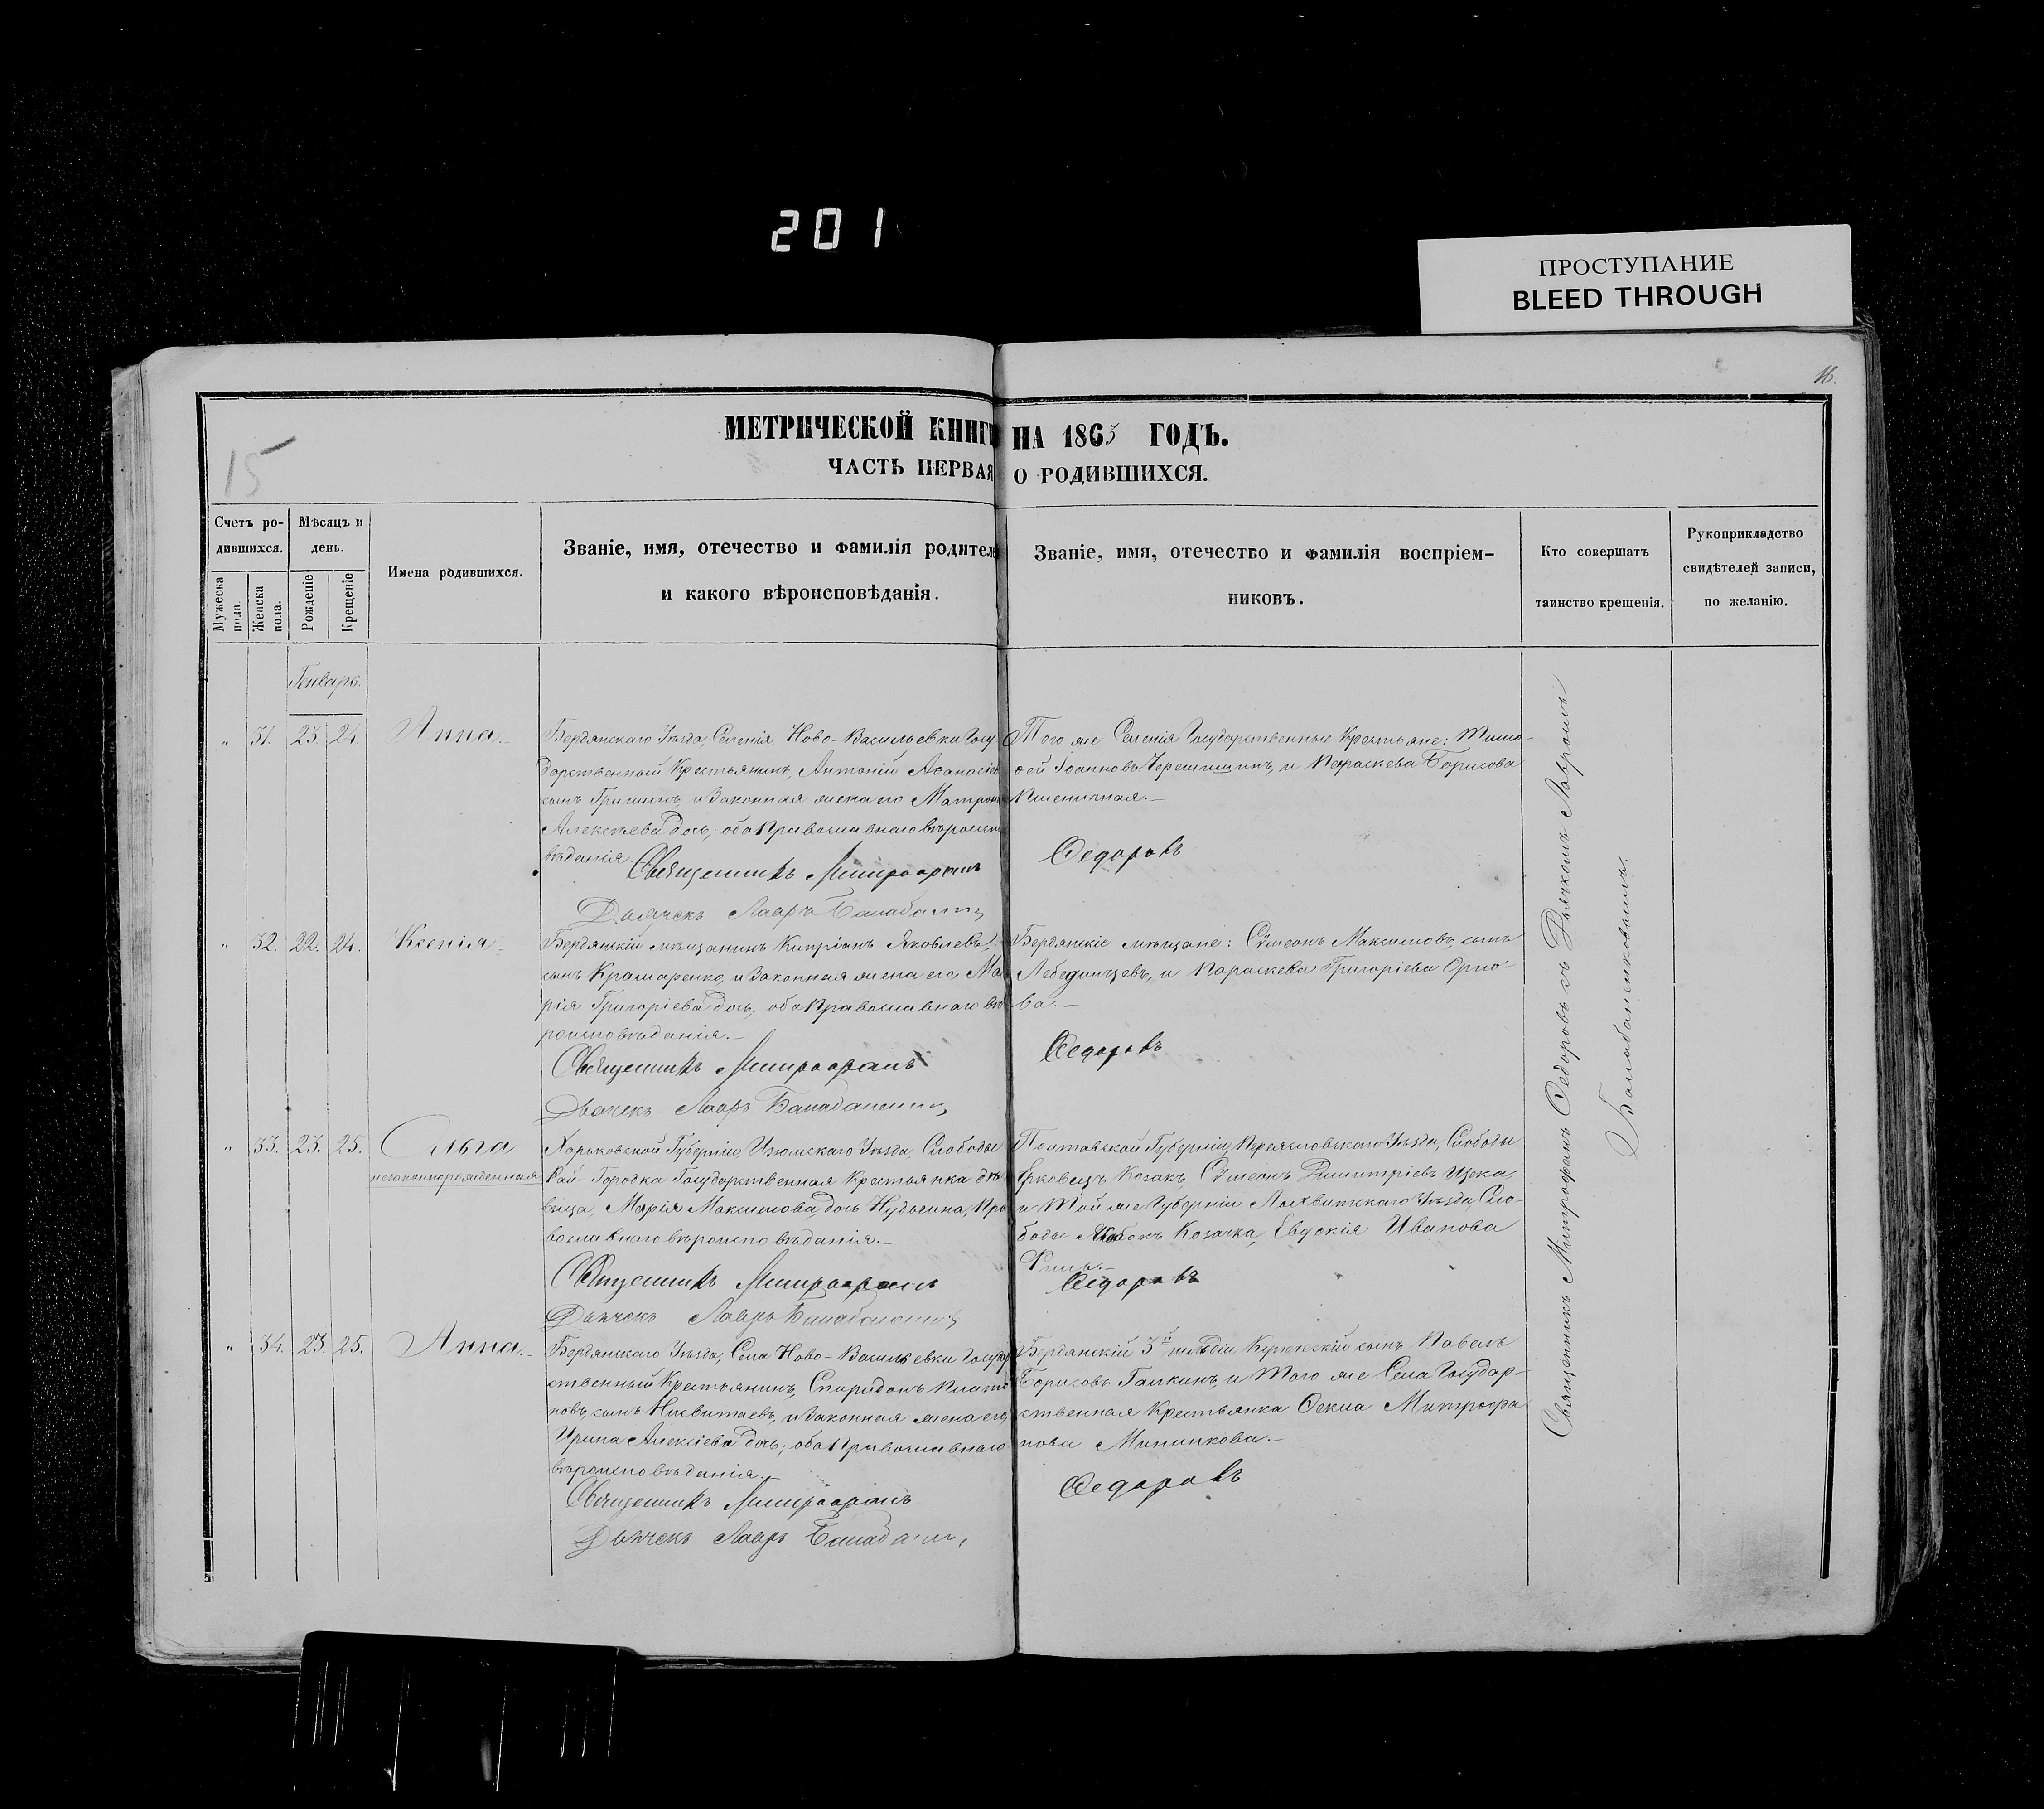 201
ПРОСТУПАНИЕ
BLEED THROUGH
16.
15
МЕТРИЧЕСКОЙ КНИГИ НА 1865 ГОДЪ.
ЧАСТЬ ПЕРВАЯ О РОДИВШИХСЯ.
Счетъ ро-
дившихся.
Мужеска пола.
Женска пола.
Мѣсяцъ и
день.
Рожденіе
Крещеніе
Имена родившихся.
Званіе, имя, отечество и фамилія родител
и какого вѣроисповѣданія.
Званіе, имя, отечество и фамилія воспріем-
никовъ.
Кто совершатъ
таинство крещенія.
Рукоприкладство
свидѣтелей записи,
по желанію.
Январь.
" 31. 23. 24. Анна.
Бердянскаго Уѣзда, Селенія Ново-Васильевки Госу
дарственный Крестьянинъ, Антоній Аѳанасіев
сынъ Гришинъ, и Законная жена его Матрона
Алексѣева дочь, оба Православнаго вѣроиспо
вѣданія.
Священникъ Митрофанъ
Дьячекъ Лавръ
Того же Селенія Государственные Крестьяне: Тимо-
ѳей Іоанновъ Черешишинъ, и Параскева Борисова
Пшеничная.-
Ѳедоровъ
" 32. 22. 24. Ксенія
Бердянскій мѣщанинъ Кипріянъ Яковлевъ
сынъ Крамаренко, и Законная жена его Ма
рія Григоріева дочь, оба Православнаго вѣ
роисповѣданія.-
Священникъ Митрофанъ
Дьячекъ Лавръ
Бердянскіе мѣщане: Сѵмеонъ Максимовъ сынъ
Лебединцевъ, и Параскева Григоріева Орло-
ва.-
Ѳедоровъ
" 33. 23. 25. Ольга
незаконнорожденная
Харьковской Губерніи, Изюмскаго Уѣзда, Слободы
Рай-Городка Государственная Крестьянка дѣ
вица, Марія Максимова дочь Нудьгина, Пра
вославнаго вѣроисповѣданія.-
Священникъ Митрофанъ
Дьячекъ Лавръ
Полтавской Губерніи, Переяславскаго Уѣзда, Слободы
Ерковецъ Козакъ, Сѵмеонъ Димитріевъ
и Той же Губерніи Лохвитскаго Уѣзда, Сло-
боды Козачка, Евдокія Иванова
Ѳедоровъ
" 34. 23. 25. Анна.-
Бердянскаго Уѣзда, Села Ново-Васильевки Госуда
ственный Крестьянинъ, Спиридонъ Плато
новъ, сынъ и Законная жена его,
Ирина Алексіева дочь, оба Православнаго
вѣроисповѣданія.-
Священникъ Митрофанъ
Дьячекъ Лавръ
Бердянскій 3й гильдіи Купеческій сынъ Павелъ
Борисовъ Галкинъ, и Того же Села Государ-
ственная Крестьянка Ѳекла Митрофа
нова Мининкова.-
Ѳедоровъ
Священникъ Митрофанъ Ѳедоровъ съ Дьячкомъ Лавромъ
Балабаненковымъ.